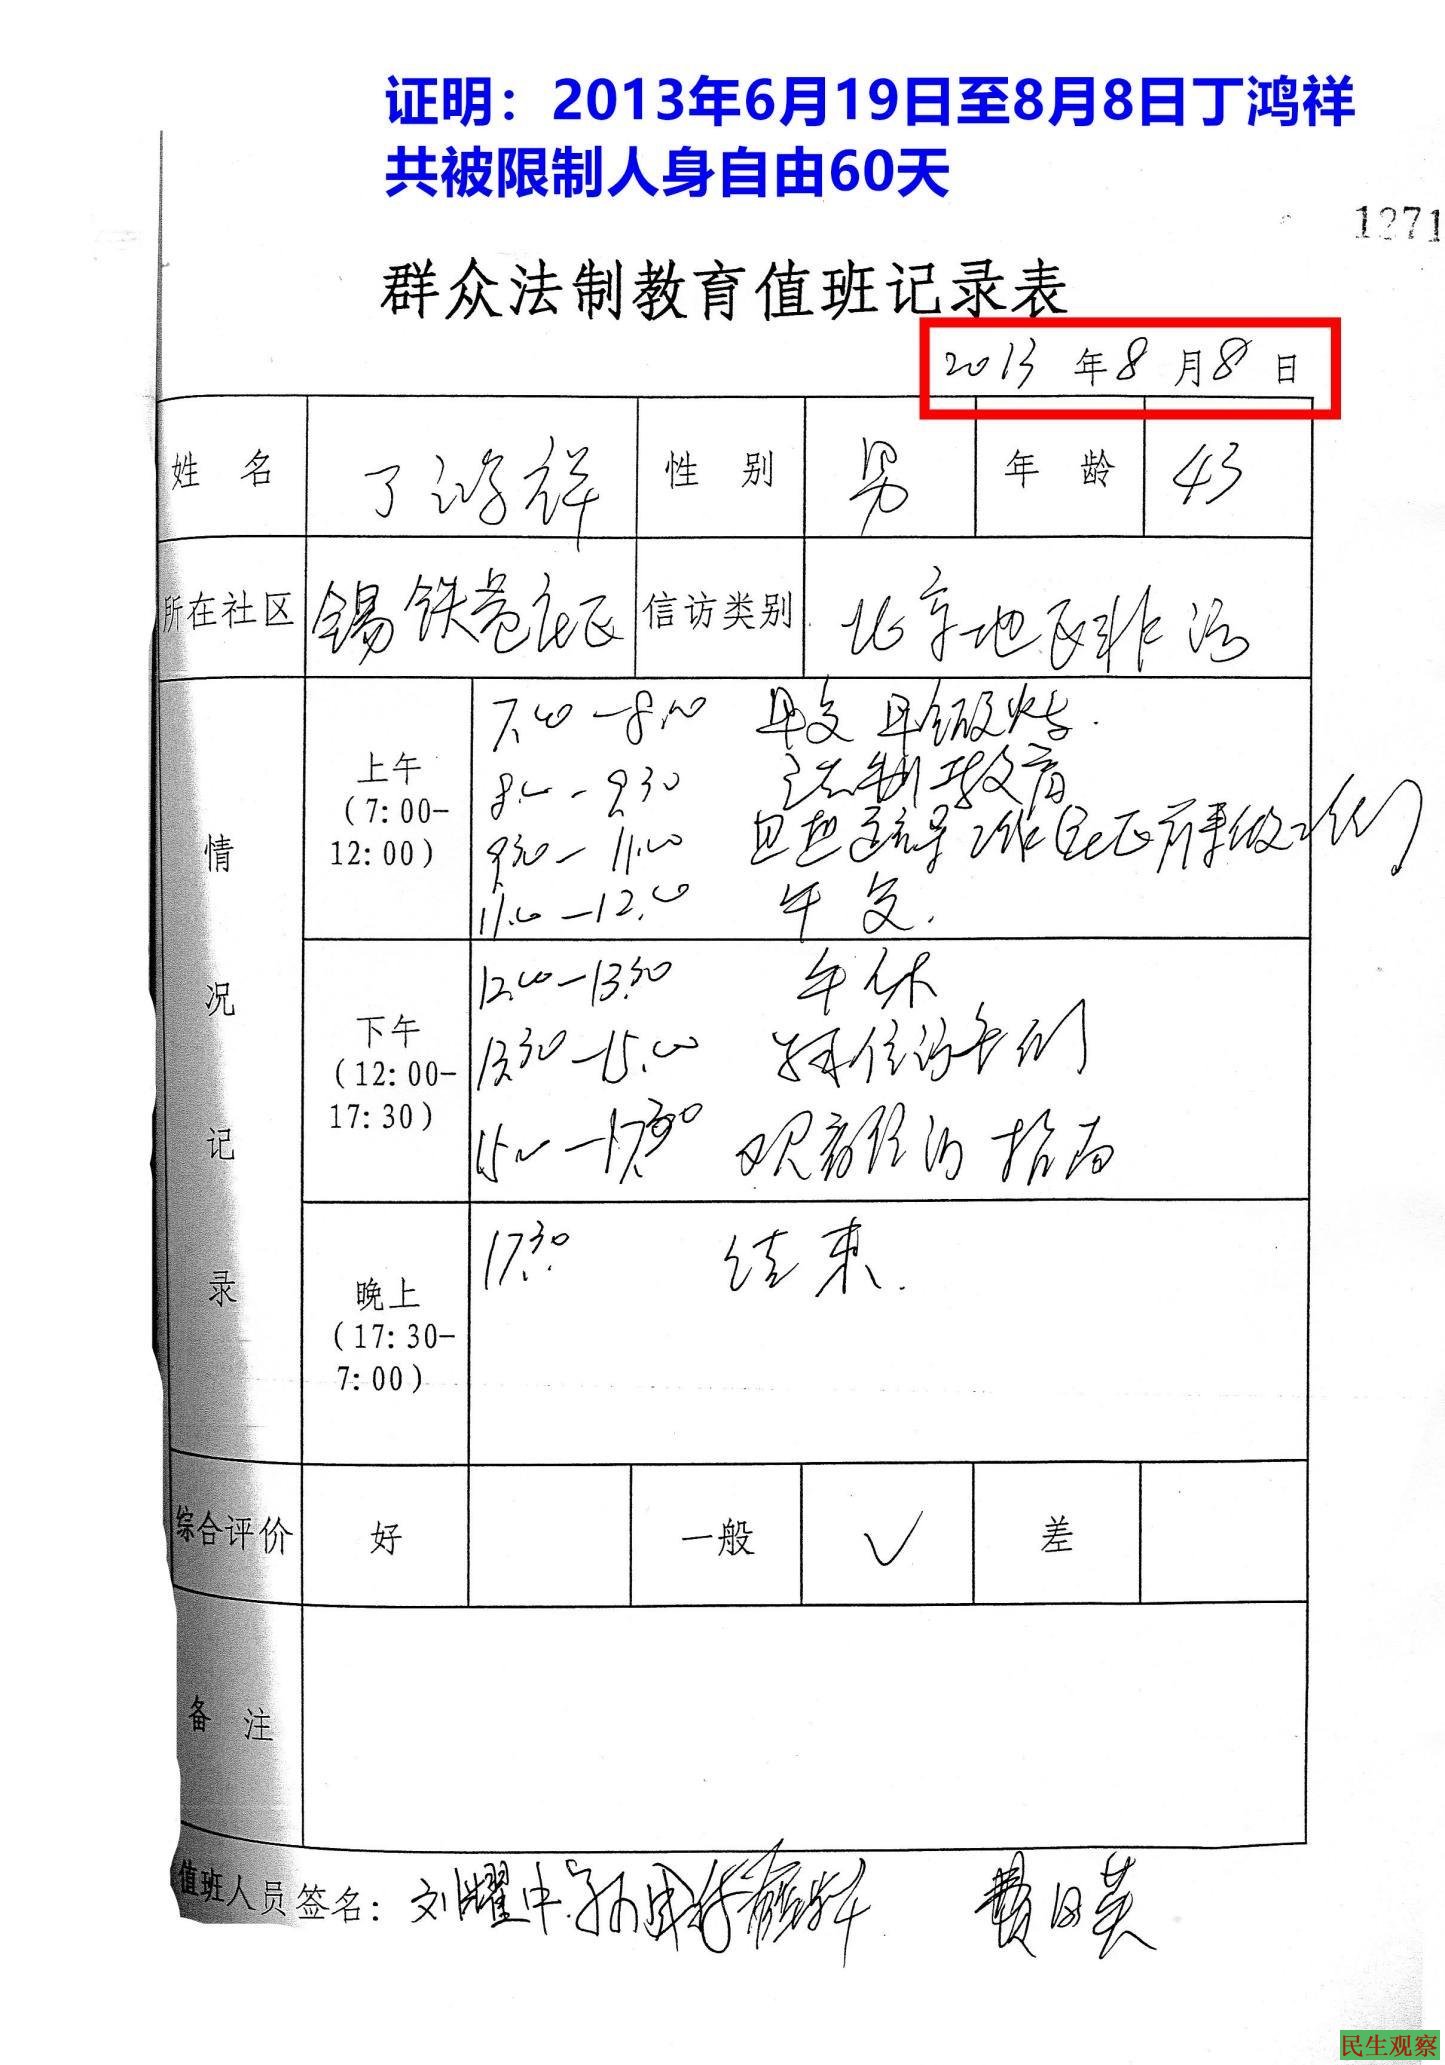 证明：2013年6月19日至8月8日丁鸿祥
共被限制人身自由60天
1271
群众法制教育值班记录表
2013 年 8 月 8 日
姓 名 丁鸿祥 性 别 男 年 龄 43
所在社区 锡铁巷社区 信访类别 北京地区非访
情况记录
上午
(7:00-
12:00)
7.40－8.00
8.00－9.30 法制教育
9.30－11.00
11.00－12.00 午
下午
(12:00-
17:30)
12.00－13.30 午休
13.30－15.00 信访条例
15.00－17.30 观 指南
晚上
(17:30-
7:00)
17.30 结束.
综合评价 好 一般 ✓ 差
备 注
值班人员签名: 刘耀中
民生观察